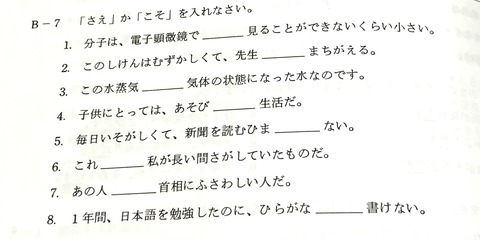 B－7 「さえ」か「こそ」を入れなさい。
1. 分子は、電子顕微鏡で______見ることができないくらい小さい。
2. このしけんはむずかしくて、先生______まちがえる。
3. この水蒸気______気体の状態になった水なのです。
4. 子供にとっては、あそび______生活だ。
5. 毎日いそがしくて、新聞を読むひま______ない。
6. これ______私が長い間さがしていたものだ。
7. あの人______首相にふさわしい人だ。
8. 1年間、日本語を勉強したのに、ひらがな______書けない。